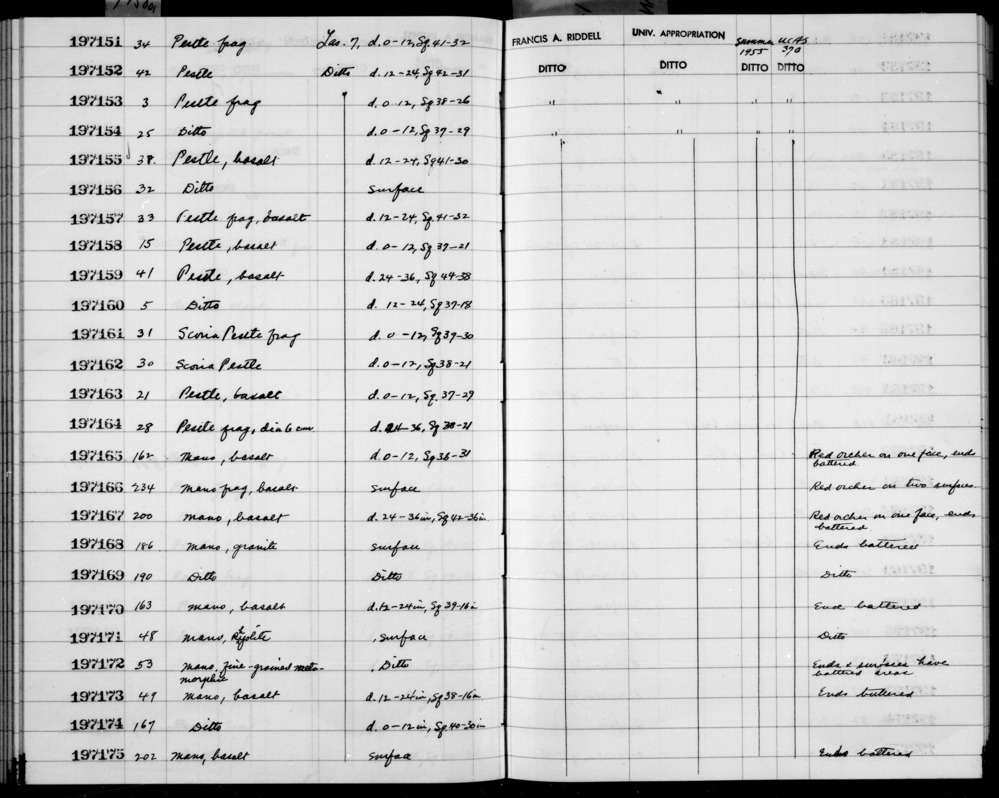 197151 34 Pestle frag Las. 7, d. 0-12, Sq. 41-32 FRANCIS A. RIDDELL UNIV. APPROPRIATION Summer 1955 UCAS 370
197152 42 Pestle Ditto d. 12-24, Sq 42-31 DITTO DITTO DITTO DITTO
197153 3 Pestle frag " d. 0-12, Sq 38-26 " " " "
197154 25 Ditto d. 0-12, Sq 37-29 " " " "
197155 38. Pestle, basalt d. 12-24, Sq 41-30
197156 32 Ditto surface
197157 33 Pestle frag, basalt d. 12-24, Sq. 41-32
197158 15 Pestle, basalt d. 0-12, Sq 37-21
197159 41 Pestle, basalt d. 24-36, Sq 44-38
197160 5 Ditto d. 12-24, Sq 37-18
197161 31 Scoria Pestle frag d. 0-12, Sq 39-30
197162 30 Scoria Pestle d. 0-12, Sq 38-21
197163 21 Pestle, basalt d. 0-12, Sq. 37-29
197164 28 Pestle frag, dia 6 cm d. 24-36, Sq 38-21
197165 162 Mano, basalt d. 0-12, Sq 38-31 Red ocher on one face, ends
battered
197166 234 Mano frag, basalt surface Red ocher on two surfaces
197167 200 Mano, basalt d. 24-36 in, Sq 42-36 in Red ocher on one face, ends
battered
197168 186 Mano, granite surface Ends battered
197169 190 Ditto Ditto Ditto
197170 163 Mano, basalt d. 12-24 in, Sq 39-16 in End battered
197171 48 Mano, surface Ditto
197172 53 Mano, fine-grained meta- Ditto Ends & surfaces have
morphic battered areas
197173 49 Mano, basalt d. 12-24 in, Sq 38-16 in Ends battered
197174 167 Ditto d. 0-12 in, Sq. 40-30 in
197175 202 Mano, basalt surface Ends battered